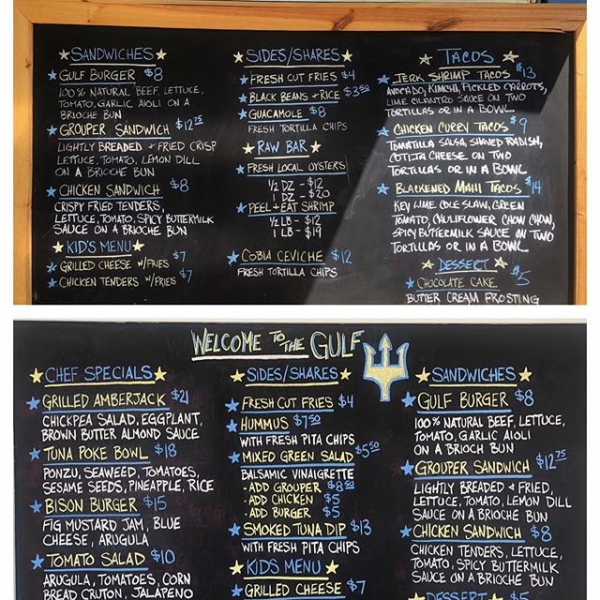 SANDWICHES
GULF BURGER $8
100% NATURAL BEEF, LETTUCE,
TOMATO, GARLIC AIOLI ON A
BRIOCHE BUN
GROUPER SANDWICH $12.75
LIGHTLY BREADED + FRIED CRISP
LETTUCE, TOMATO, LEMON DILL
ON A BRIOCHE BUN
CHICKEN SANDWICH $8
CRISPY FRIED TENDERS,
LETTUCE, TOMATO, SPICY BUTTERMILK
SAUCE ON A BRIOCHE BUN
KID'S MENU
GRILLED CHEESE W/FRIES $7
CHICKEN TENDERS W/FRIES $7
SIDES/SHARES
FRESH CUT FRIES $4
BLACK BEANS + RICE $3.50
GUACAMOLE $8
FRESH TORTILLA CHIPS
RAW BAR
FRESH LOCAL OYSTERS
1/2 DZ - $12
1 DZ - $20
PEEL + EAT SHRIMP
1/2 LB - $12
1 LB - $19
COBIA CEVICHE $12
FRESH TORTILLA CHIPS
TACOS
JERK SHRIMP TACOS $13
AVOCADO, KIMCHI, PICKLED CARROTS,
LIME CILANTRO SAUCE ON TWO
TORTILLAS OR IN A BOWL
CHICKEN CURRY TACOS $9
TOMATILLA SALSA, SHAVED RADISH,
COTIJA CHEESE ON TWO
TORTILLAS OR IN A BOWL
BLACKENED MAHI TACOS $14
KEY LIME COLE SLAW, GREEN
TOMATO, CAULIFLOWER CHOW CHOW,
SPICY BUTTERMILK SAUCE ON TWO
TORTILLAS OR IN A BOWL
DESSERT
CHOCOLATE CAKE $5
BUTTER CREAM FROSTING
WELCOME TO THE GULF
CHEF SPECIALS
GRILLED AMBERJACK $21
CHICKPEA SALAD, EGGPLANT,
BROWN BUTTER ALMOND SAUCE
TUNA POKE BOWL $18
PONZU, SEAWEED, TOMATOES,
SESAME SEEDS, PINEAPPLE, RICE
BISON BURGER $15
FIG MUSTARD JAM, BLUE
CHEESE, ARUGULA
TOMATO SALAD $10
ARUGULA, TOMATOES, CORN
BREAD CRUTON, JALAPENO
SIDES/SHARES
FRESH CUT FRIES $4
HUMMUS $7.50
WITH FRESH PITA CHIPS
MIXED GREEN SALAD $5.50
BALSAMIC VINAIGRETTE
· ADD GROUPER $8.50
· ADD CHICKEN $5
· ADD BURGER $5
SMOKED TUNA DIP $13
WITH FRESH PITA CHIPS
KIDS MENU
GRILLED CHEESE $7
SANDWICHES
GULF BURGER $8
100% NATURAL BEEF, LETTUCE,
TOMATO, GARLIC AIOLI
ON A BRIOCH BUN
GROUPER SANDWICH $12.75
LIGHTLY BREADED + FRIED,
LETTUCE, TOMATO, LEMON DILL
SAUCE ON A BRIOCHE BUN
CHICKEN SANDWICH $8
CHICKEN TENDERS, LETTUCE,
TOMATO, SPICY BUTTERMILK
SAUCE ON A BRIOCHE BUN
DESSERT $5